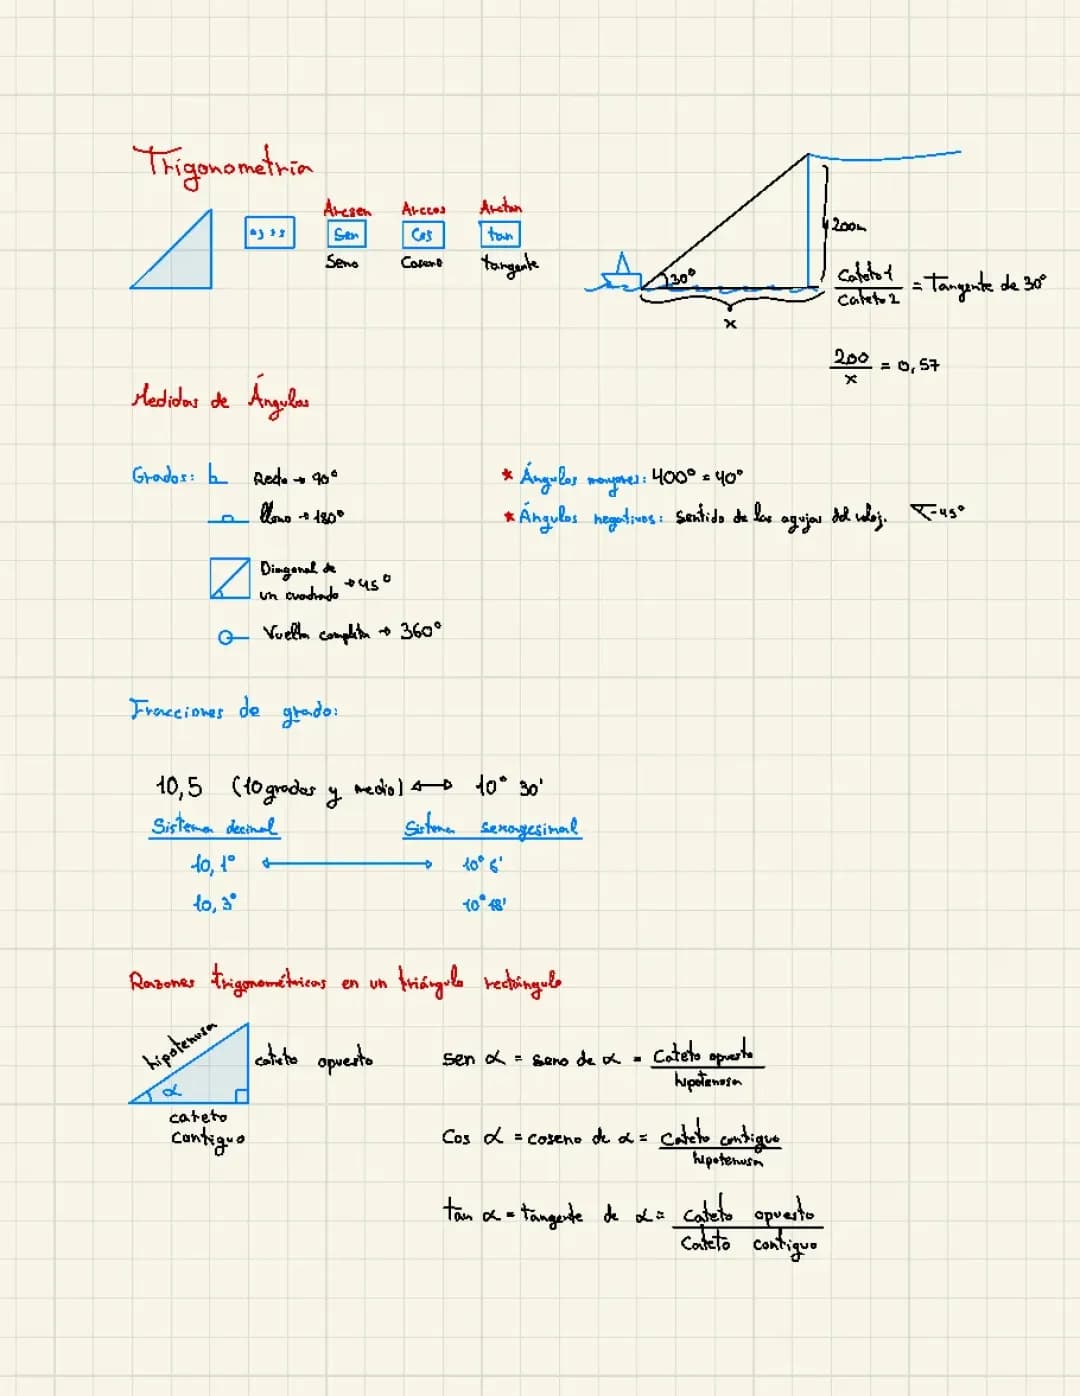 Trigonometría
Arcsen Arccos Arctan
Sen Cos tan
Seno Coseno tangente
30°
200m
x
Cateto 1 / Cateto 2 = Tangente de 30°
200 / x = 0,57
Medidas de Ángulos
Grados: Recto → 90°
llano → 180°
Diagonal de
un cuadrado → 45°
Vuelta completa → 360°
* Ángulos mayores: 400° = 40°
* Ángulos negativos: Sentido de las agujas del reloj. -45°
Fracciones de grado:
10,5 (10 grados y medio) ↔ 10° 30'
Sistema decimal Sistema sexagesimal
10,1° ↔ 10° 6'
10,3° 10° 18'
Razones trigonométricas en un triángulo rectángulo
hipotenusa
cateto opuesto
α
cateto
contiguo
sen α = seno de α = Cateto opuesto / hipotenusa
Cos α = coseno de α = Cateto contiguo / hipotenusa
tan α = tangente de α = Cateto opuesto / Cateto contiguo